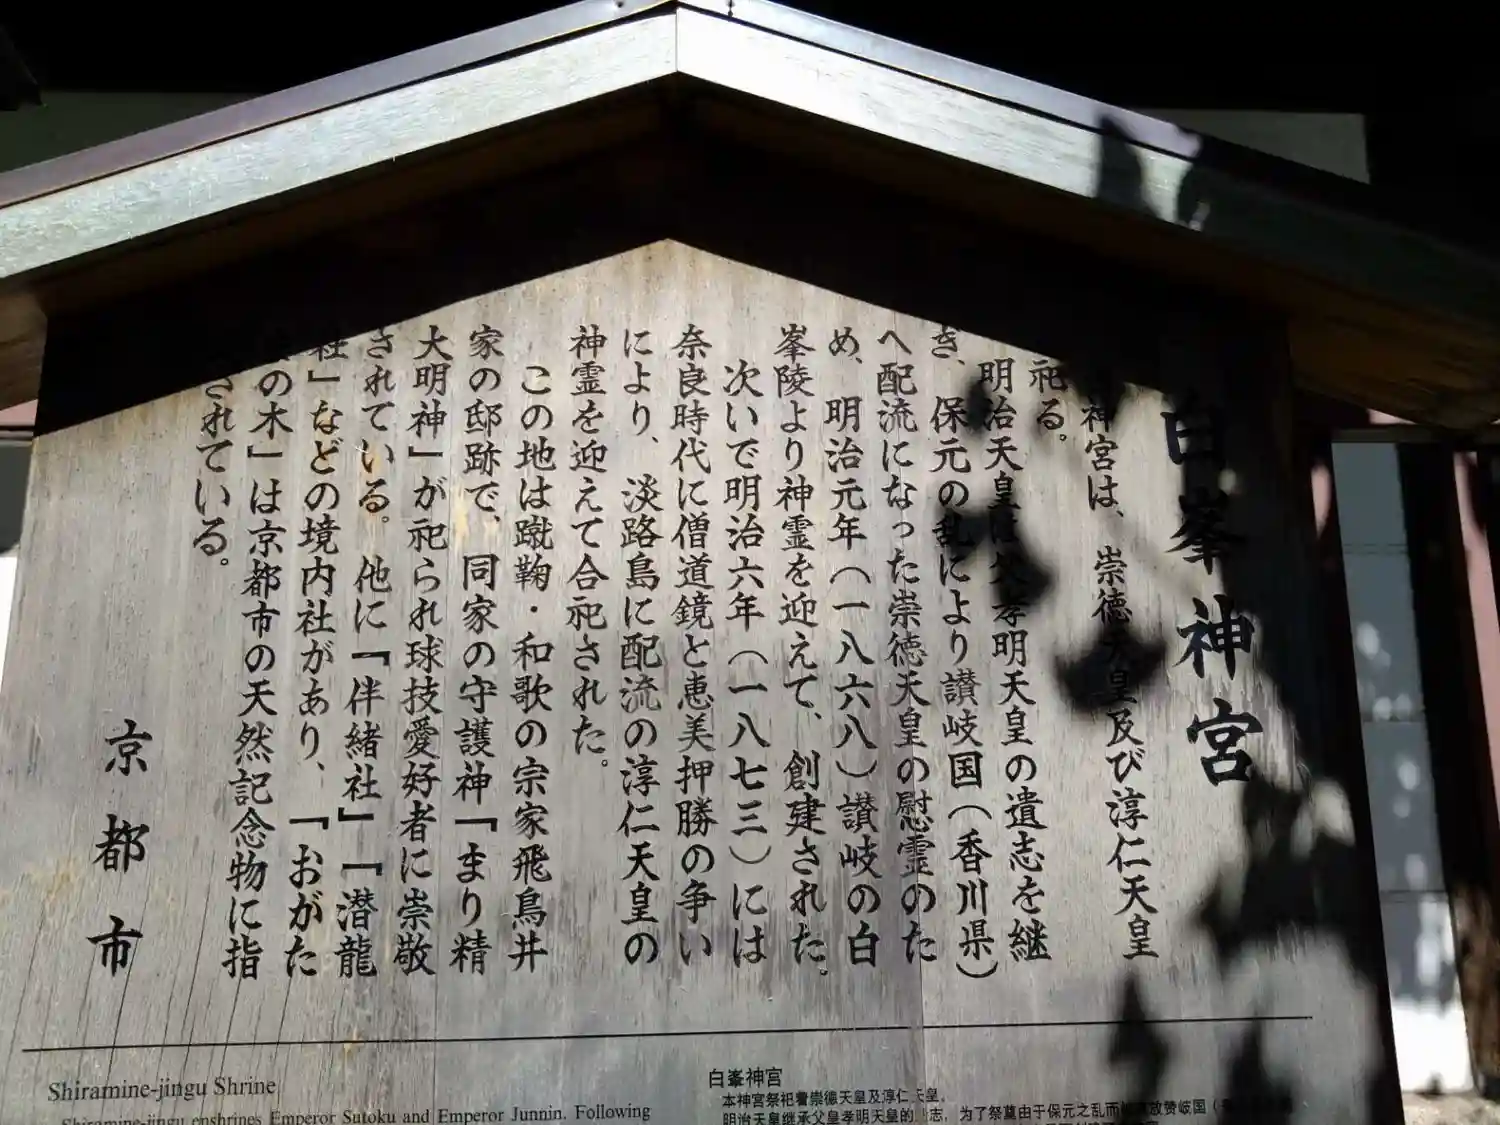 白峯神宮
神宮は、崇徳天皇及び淳仁天皇
祀る。
明治天皇は父孝明天皇の遺志を継
ぎ、保元の乱により讃岐国（香川県）
へ配流になった崇徳天皇の慰霊のた
め、明治元年（一八六八）讃岐の白
峯陵より神霊を迎えて、創建された。
次いで明治六年（一八七三）には
奈良時代に僧道鏡と恵美押勝の争い
により、淡路島に配流の淳仁天皇の
神霊を迎えて合祀された。
この地は蹴鞠・和歌の宗家飛鳥井
家の邸跡で、同家の守護神「まり精
大明神」が祀られ球技愛好者に崇敬
されている。他に『伴緒社』『潜龍
社」などの境内社があり、「おがた
の木」は京都市の天然記念物に指
されている。
京都市
Shiramine-jingu Shrine
Shiramine-jingu enshrines Emperor Sutoku and Emperor Junnin. Following
白峯神宮
本神宮祭祀着崇德天皇及淳仁天皇。
明治天皇继承父皇孝明天皇的志，为了祭奠由于保元之乱而放赞岐国（